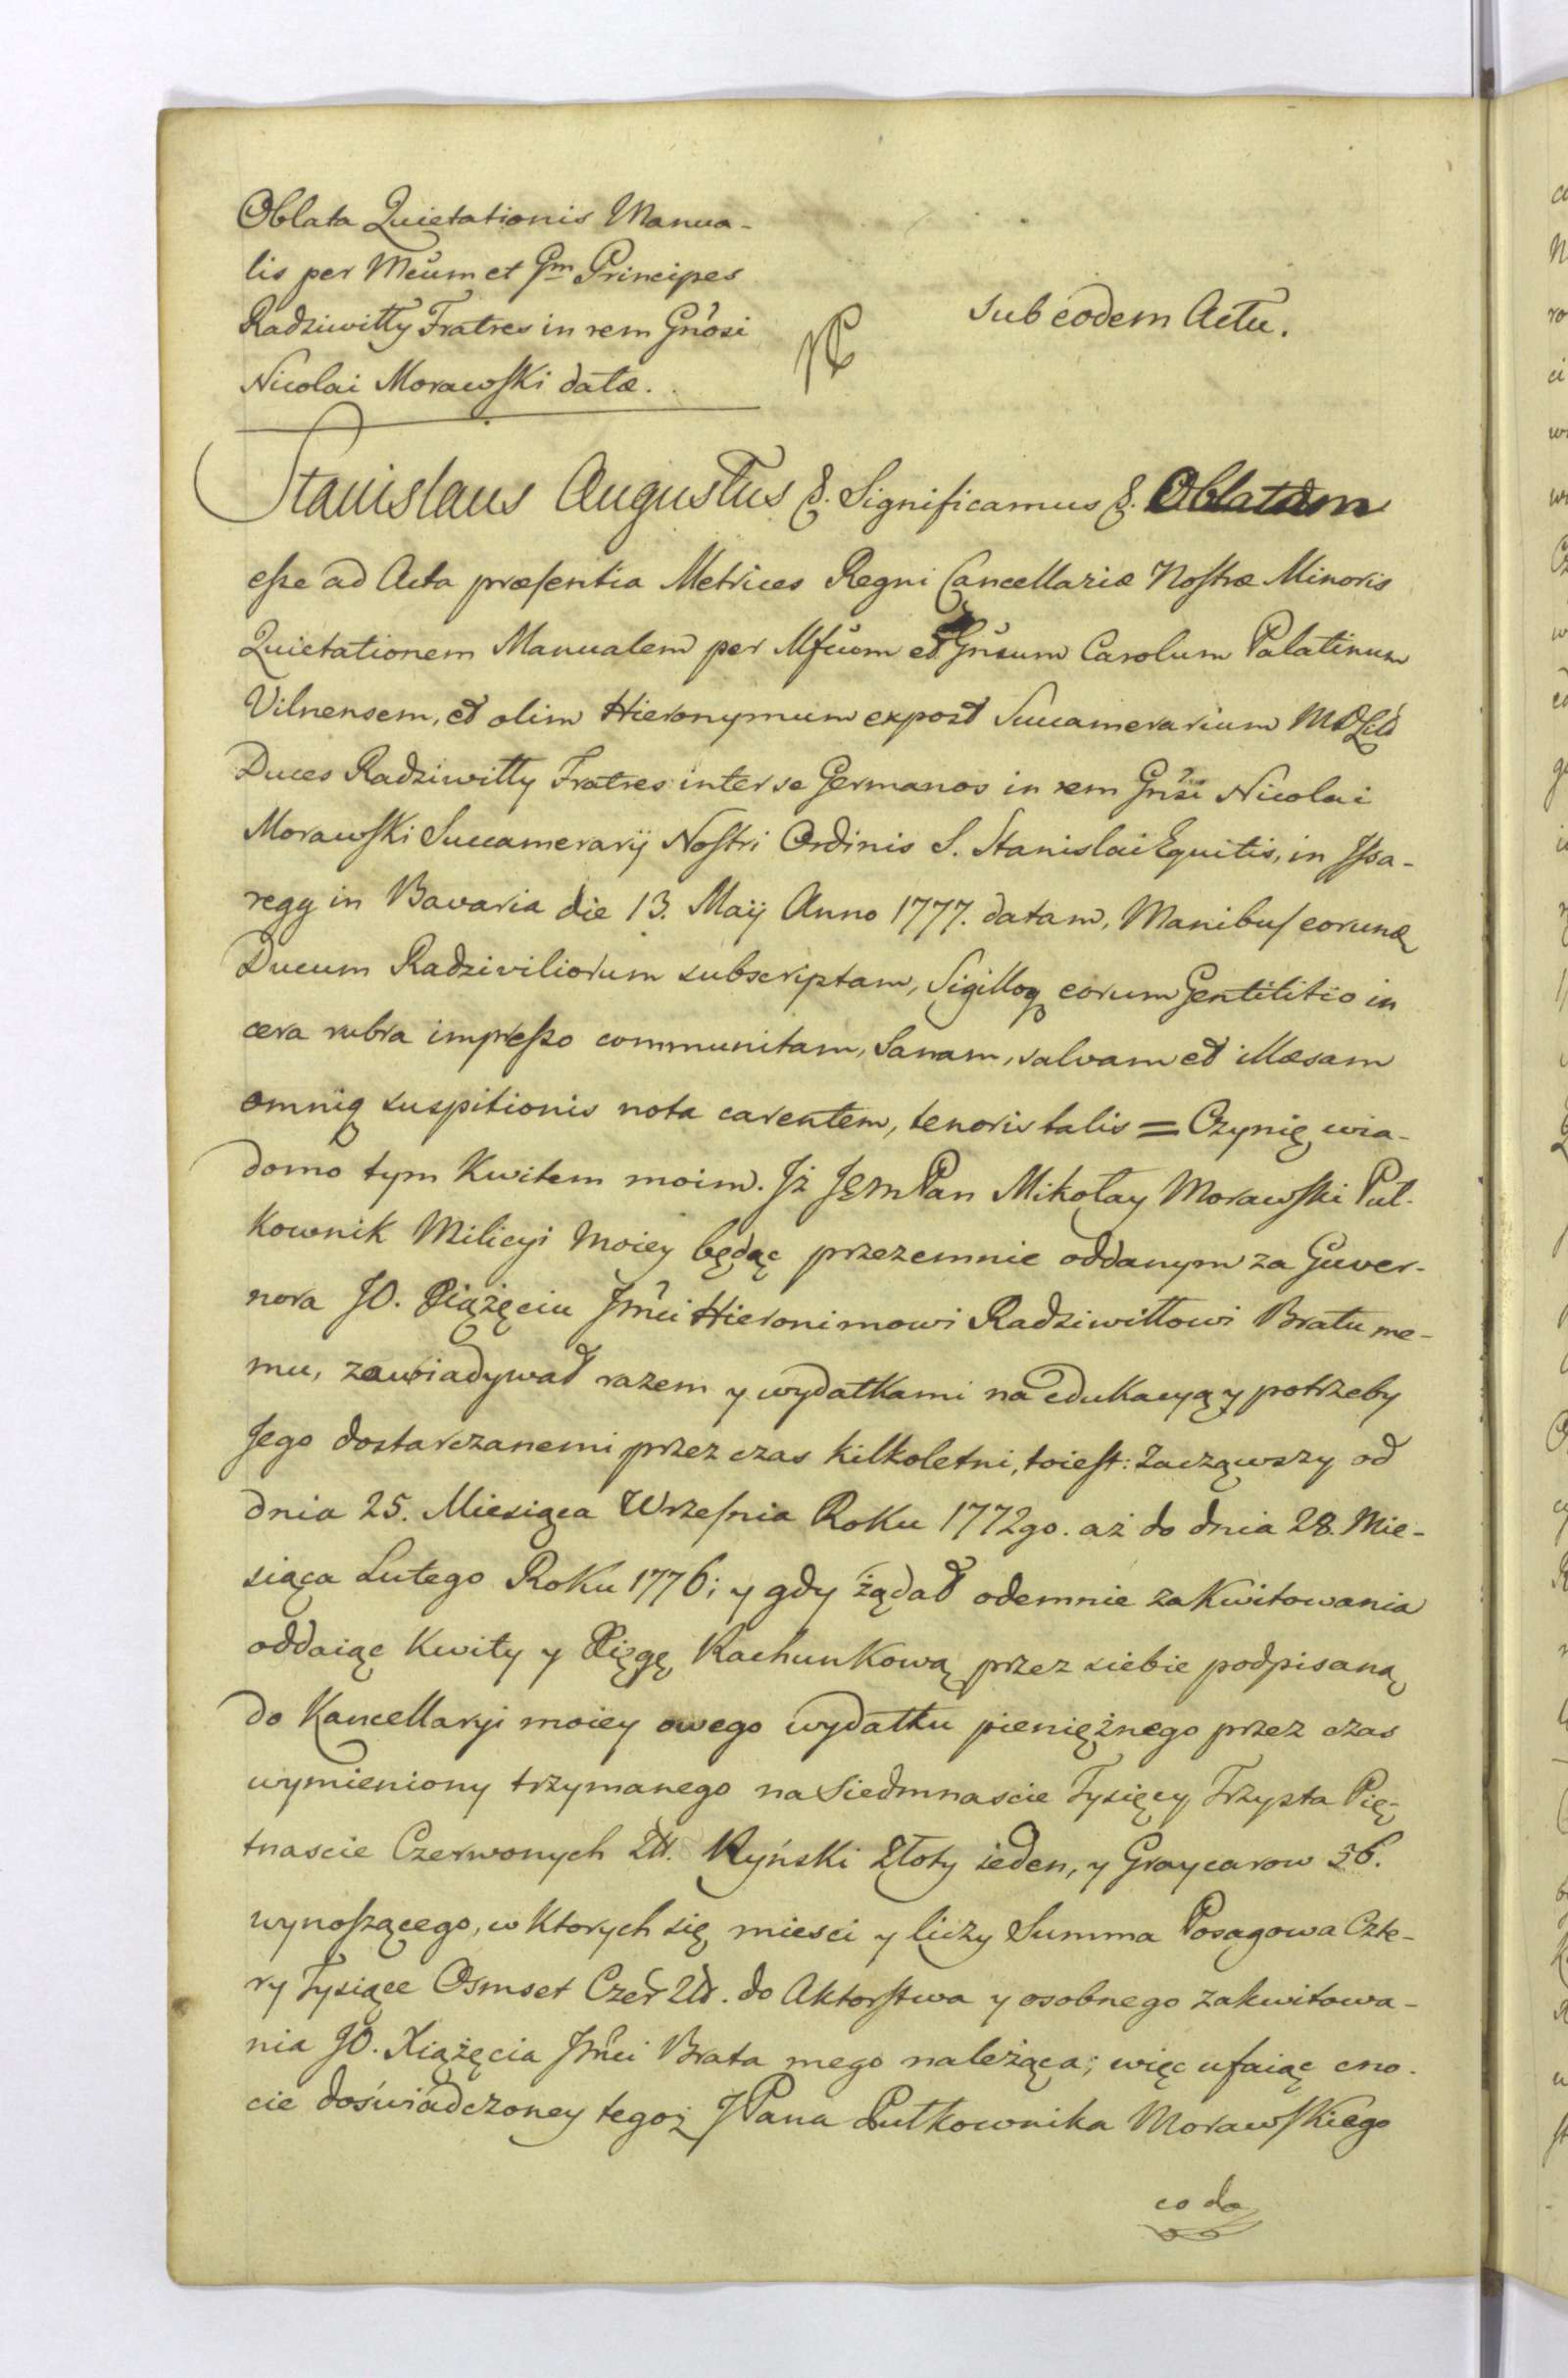 Oblata Quietationis Manua-
lis per Mcum et Gm Principes
Radziwiłły Fratres in rem Gnosi
Nicolai Morawſki datæ.
sub eodem Actu.
Stanislaus Augustus &. Significamus &. Oblatam
eſse ad Acta præſentia Metrices Regni Cancellariæ Noſtræ Minoris
Quietationem Manualem per Mfcum et Gnsum Carolum Palatinum
Vilnensem, et olim Hieronymum expost Succamerarium MDLit
Duces Radziwiłły Fratres inter se Germanos in rem Gnsi Nicolai
Morawſki Succamerarij Noſtri Ordinis S. Stanislai Equitis, in
regg in Bavaria die 13. Maij Anno 1777. datam, Manibuſ eorund
Ducum Radziviliorum subscriptam, Sigilloq eorum Gentilitio in
cera rubra impreſso communitam, Sanam, salvam et illæsam
omniq suspitionis nota carentem, tenoris talis = Czynię wia-
domo tym Kwitem moim. Jż JEmPan Mikołay Morawſki Puł-
kownik Milicyi Moiey będąc przezemnie oddanym za Guwer-
nora JO. Xiążęciu Jmci Hieronimowi Radziwiłłowi Bratu me-
mu, zawiadywał razem y wydatkami na edukacyą y potrzeby
Jego dostarczanemi przez czas kilkoletni, toieſt: Zacząwszy od
dnia 25. Miesiąca Wrzeſnia Roku 1772go. aż do dnia 28. Mie-
siąca Lutego Roku 1776; y gdy żądał odemnie zakwitowania
oddaiąc Kwity y Xięgę Rachunkową przez siebie podpisaną
do Kancellaryi moiey owego wydatku pieniężnego przez czas
wymieniony trzymanego na Siedmnascie Tysięcy Trzysta Pię-
tnascie Czerwonych Zł. Ryński Złoty ieden, y Graycarow 36.
wynoſzącego, w Ktorych się miesci y liczy Summa Posagowa Czte-
ry Tysiące Osmset Czer Zł. do Aktorſtwa y osobnego zakwitowa-
nia JO. Xiążęcia Jmci Brata mego należąca; więc ufaiąc cno-
cie doświadczoney tegoż JPana Pułkownika Morawſkiego
co do